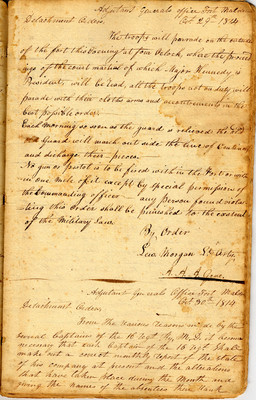 Adjutant Generals office Fort Malden
Oct 29th 1814
Detachment Orders,
The troops will parade on the outside
of the fort this Evening at four Oclock, where the proceed
ings of the court martial of which Major Kennedy is
President, will be read, all the troops not on duty will
parade with their cloths arms and accoutrements in the
best possible order.
Each morning as soon as the guard is relieved the old
Guard will march out side the line of Centinels
and discharge their pieces.
No gun or pistol is to be fired within the Fort or with
in one mile of it except by special permission of
the Commanding officer any person found viola
ting this Order shall be punished to the extent
of the Military Law.
By Order
Morgan Lt
A. A. A. Genl.
Adjutant Generals Office Fort Malden
Oct 30th 1814
Detachment Orders,
From the various reasons made by the
several Captains of the 16 Regt it deems
necessary that each Captain of the 16 Regt shall
made out a correct monthly report of the state
of his company at present and the alterations
that have taken place during the Month and
giving the names of the absentees their Rank